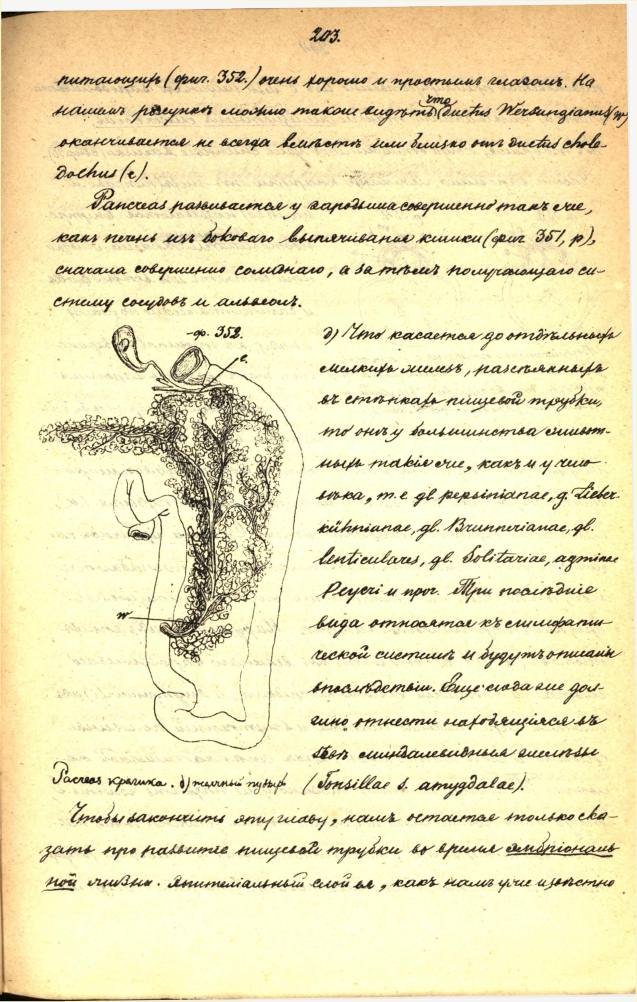 203.
питающихъ (фиг. 352.) очень хорошо и простымъ глазомъ. На
нашемъ рисункѣ можно также видѣть, что ductus Wirsungianus (w)
оканчивается не всегда вмѣстѣ или близко отъ ductus chole-
dochus (c).
Pancreas развивается у зародыша совершенно такъ же,
какъ печень изъ боковаго выпячиванія кишки (фиг. 351, p),
сначала совершенно солиднаго, а затѣмъ получающаго си-
стему сосудовъ и альвеолъ.
ф. 352.
c.
w
д) Что касается до отдѣльныхъ
мелкихъ железъ, разсѣянныхъ
въ стѣнкахъ пищевой трубки,
то онѣ у большинства живот-
ныхъ такія же, какъ и у чело-
вѣка, т.е. gl. pepsinianae, g. Lieber-
kühnianae, gl. Brunnerianae, gl.
lenticulares, gl. Solitariae, agminae
Peyeri и проч. Три послѣдніе
вида относятся къ лимфати-
ческой системѣ и будутъ описаны
впослѣдствіи. Еще сюда же дол-
жно отнести находящіяся въ
зѣвѣ миндалевидныя железы
(Tonsillae s. amygdalae).
Pacreas кролика. b) желчный пузырь
Чтобы закончить эту главу, намъ остается только ска-
зать про развитіе пищевой трубки во время эмбріональ-
ной жизни. Эпителіальный слой ея, какъ намъ уже извѣстно